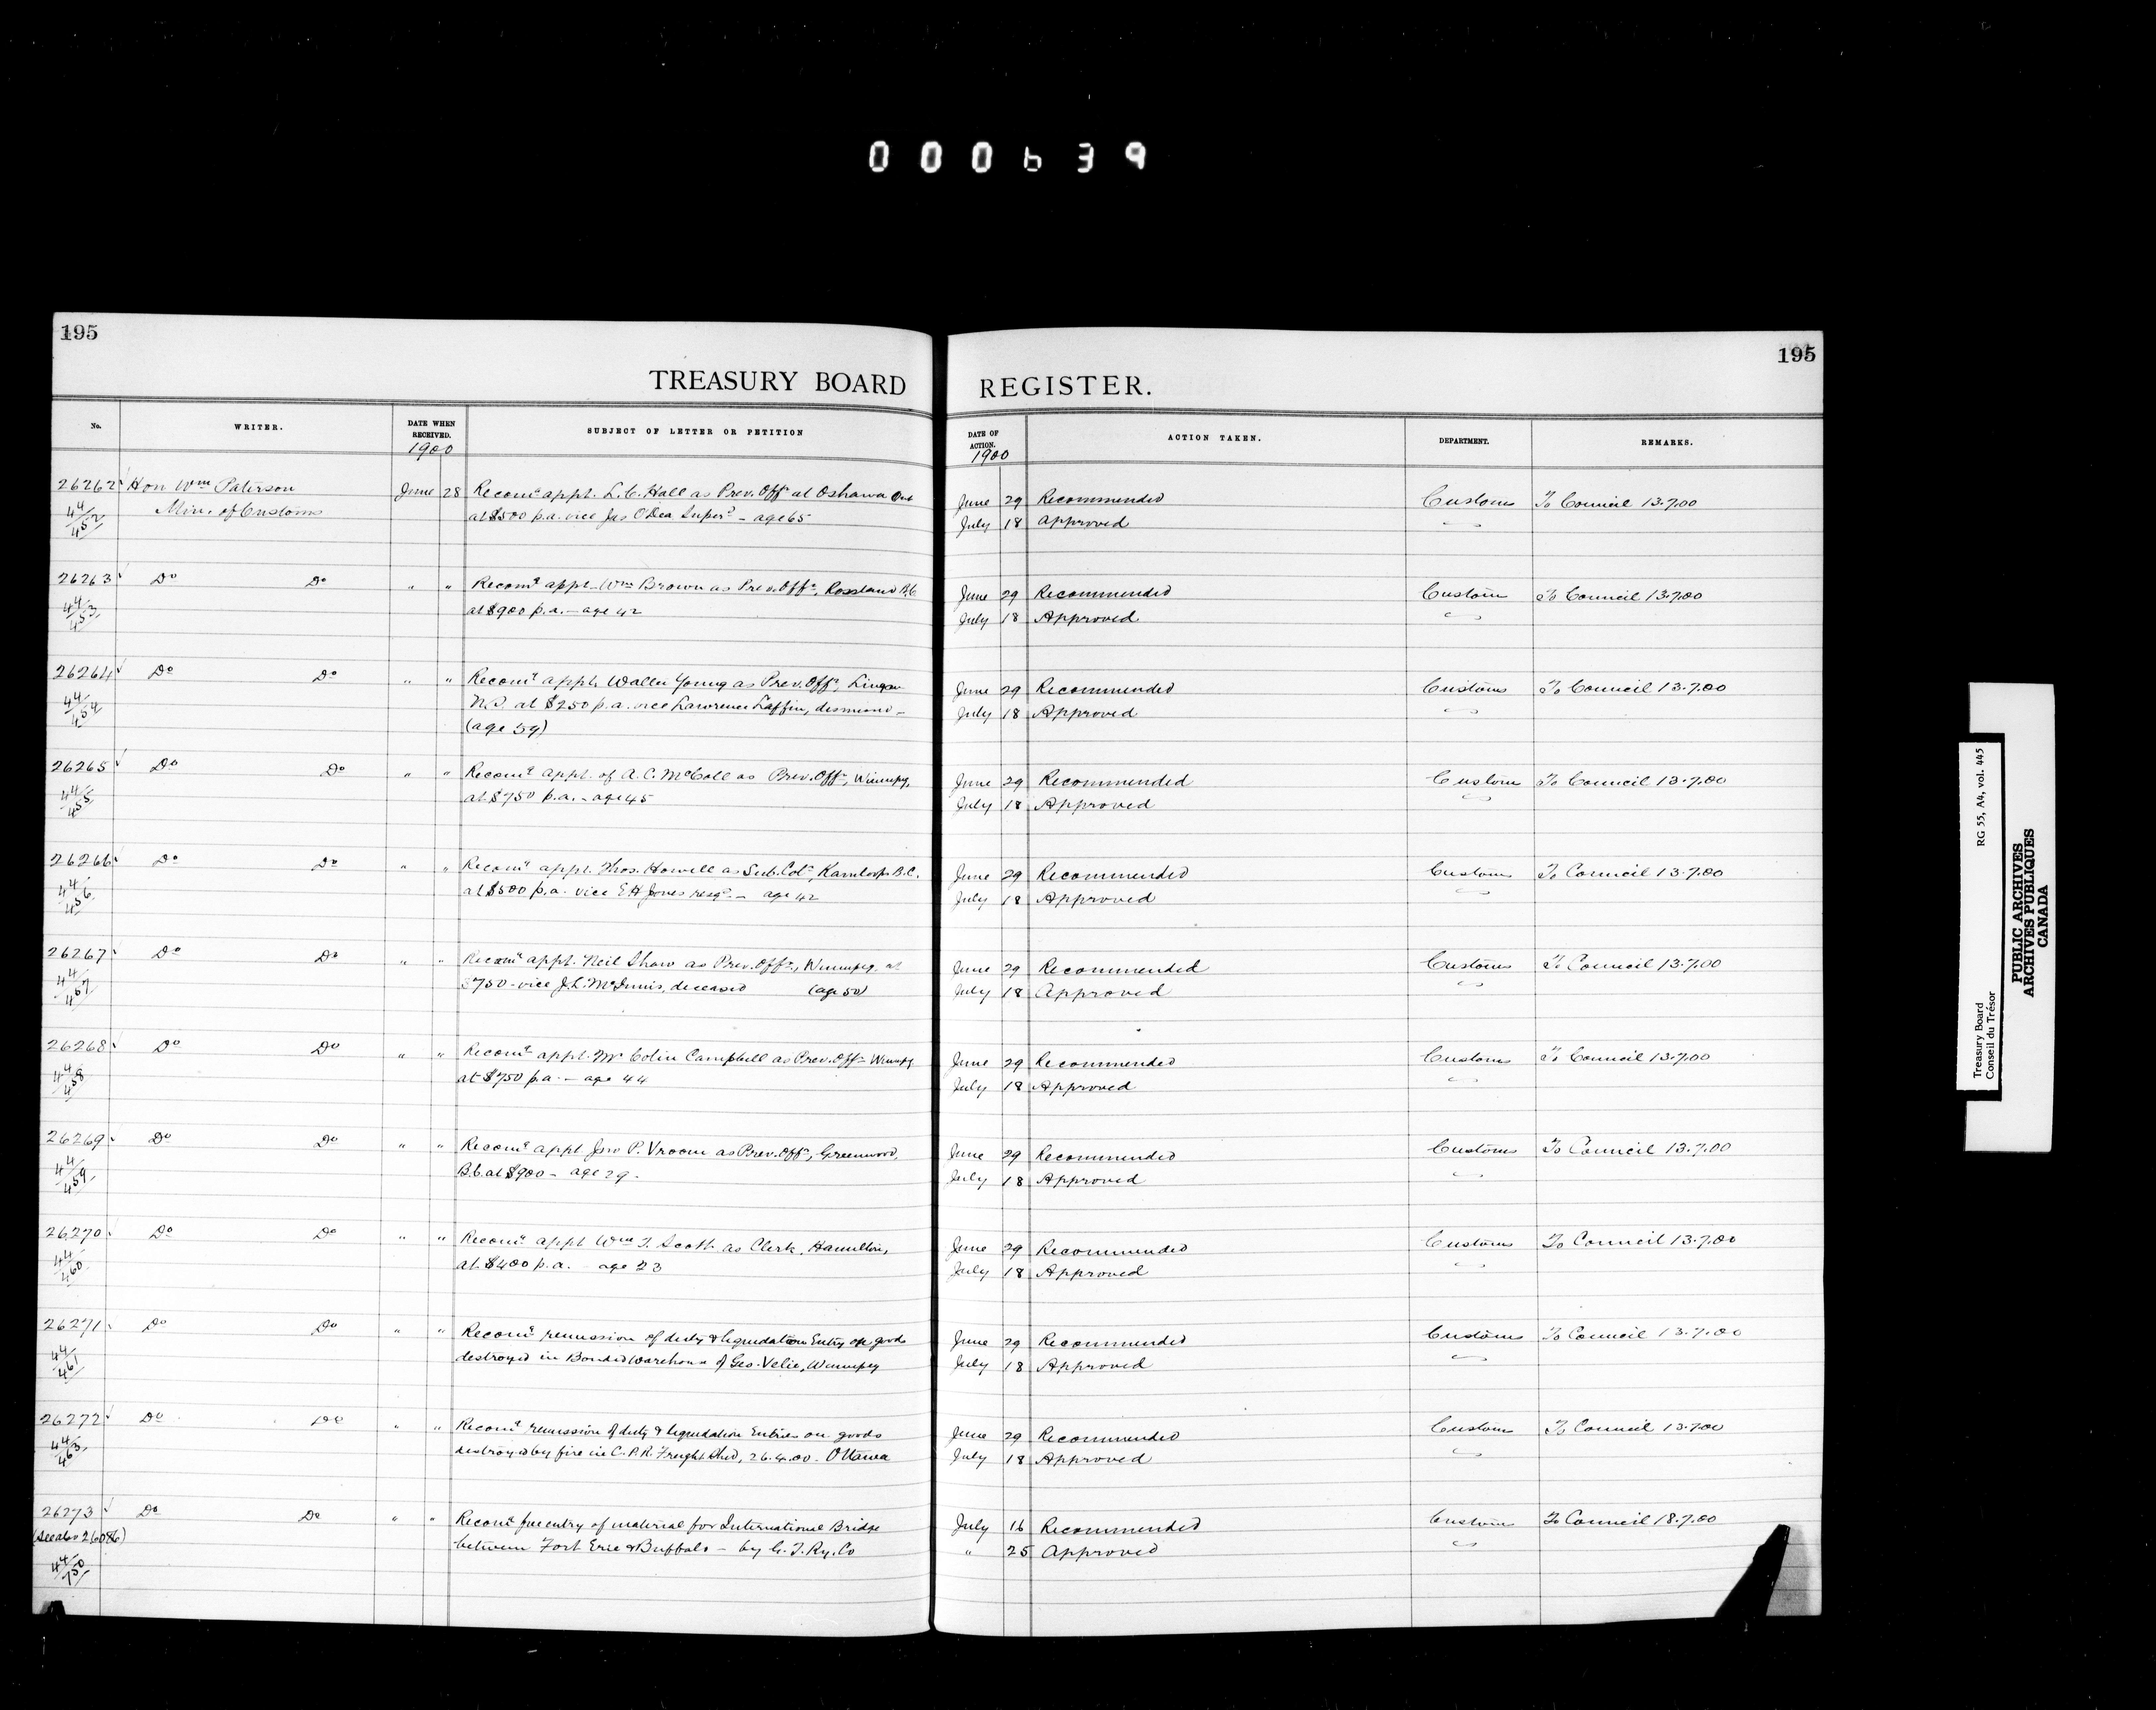 000639
195
195
TREASURY BOARD REGISTER.
No. WRITER. DATE WHEN RECEIVED. SUBJECT OF LETTER OR PETITION DATE OF ACTION. ACTION TAKEN. DEPARTMENT. REMARKS.
1900 1900
26262 Hon Wm Paterson June 28 Recomd appt. L.C. Hall as Prev. Offr at Oshawa Ont June 29 Recommended Customs To Council 13.7.00
44/452 Min. of Customs at $500 p.a. vice Jas O'Dea Superd - age 65 July 18 Approved "
26263 Do Do " " Recomd appt. Wm Brown as Prev. Offr, Rossland B.C. June 29 Recommended Customs To Council 13.7.00
44/453 at $900 p.a. - age 42 July 18 Approved "
26264 Do Do " " Recomd appt. Walter Young as Prev. Offr, Lingan June 29 Recommended Customs To Council 13.7.00
44/454 N.S. at $250 p.a. vice Lawrence Laffin, dismissed - July 18 Approved "
(age 59)
26265 Do Do " " Recomd appt. of A.C. McColl as Prev. Offr, Winnipeg, June 29 Recommended Customs To Council 13.7.00
44/455 at $750 p.a. - age 45 July 18 Approved "
26266 Do Do " " Recomd appt. Thos. Howell as Sub. Colr, Kamloops B.C. June 29 Recommended Customs To Council 13.7.00
44/456 at $500 p.a. vice E H Jones resgd - age 42 July 18 Approved "
26267 Do Do " " Recomd appt. Neil Shaw as Prev. Offr, Winnipeg, at June 29 Recommended Customs To Council 13.7.00
44/457 $750 - vice J.L. McInnis, deceased (age 50) July 18 Approved "
26268 Do Do " " Recomd appt. Mr Colin Campbell as Prev. Offr Winnipeg June 29 Recommended Customs To Council 13.7.00
44/458 at $750 p.a. - age 44 July 18 Approved "
26269 Do Do " " Recomd appt Jno P. Vroom as Prev. Offr, Greenwood, June 29 Recommended Customs To Council 13.7.00
44/459 B.C. at $900 - age 29. July 18 Approved "
26270 Do Do " " Recomd appt Wm T. Scott as Clerk, Hamilton, June 29 Recommended Customs To Council 13.7.00
44/460 at $400 p.a. - age 23 July 18 Approved "
26271 Do Do " " Recomd remission of duty & liquidation Entry on goods June 29 Recommended Customs To Council 13.7.00
44/461 destroyed in Bonded Warehouse of Geo. Velie, Winnipeg July 18 Approved "
26272 Do Do " " Recomd remission of duty & liquidation Entries on goods June 29 Recommended Customs To Council 13.7.00
44/463 destroyed by fire in C.P.R. Freight Shed, 26.4.00 - Ottawa July 18 Approved "
26273 Do Do " " Recomd free entry of material for International Bridge July 16 Recommended Customs To Council 18.7.00
(See also 26086) between Fort Erie & Buffalo - by G.T. Ry. Co " 25 Approved "
44/750
Treasury Board RG 55, A4, vol. 445
Conseil du Trésor
PUBLIC ARCHIVES
ARCHIVES PUBLIQUES
CANADA